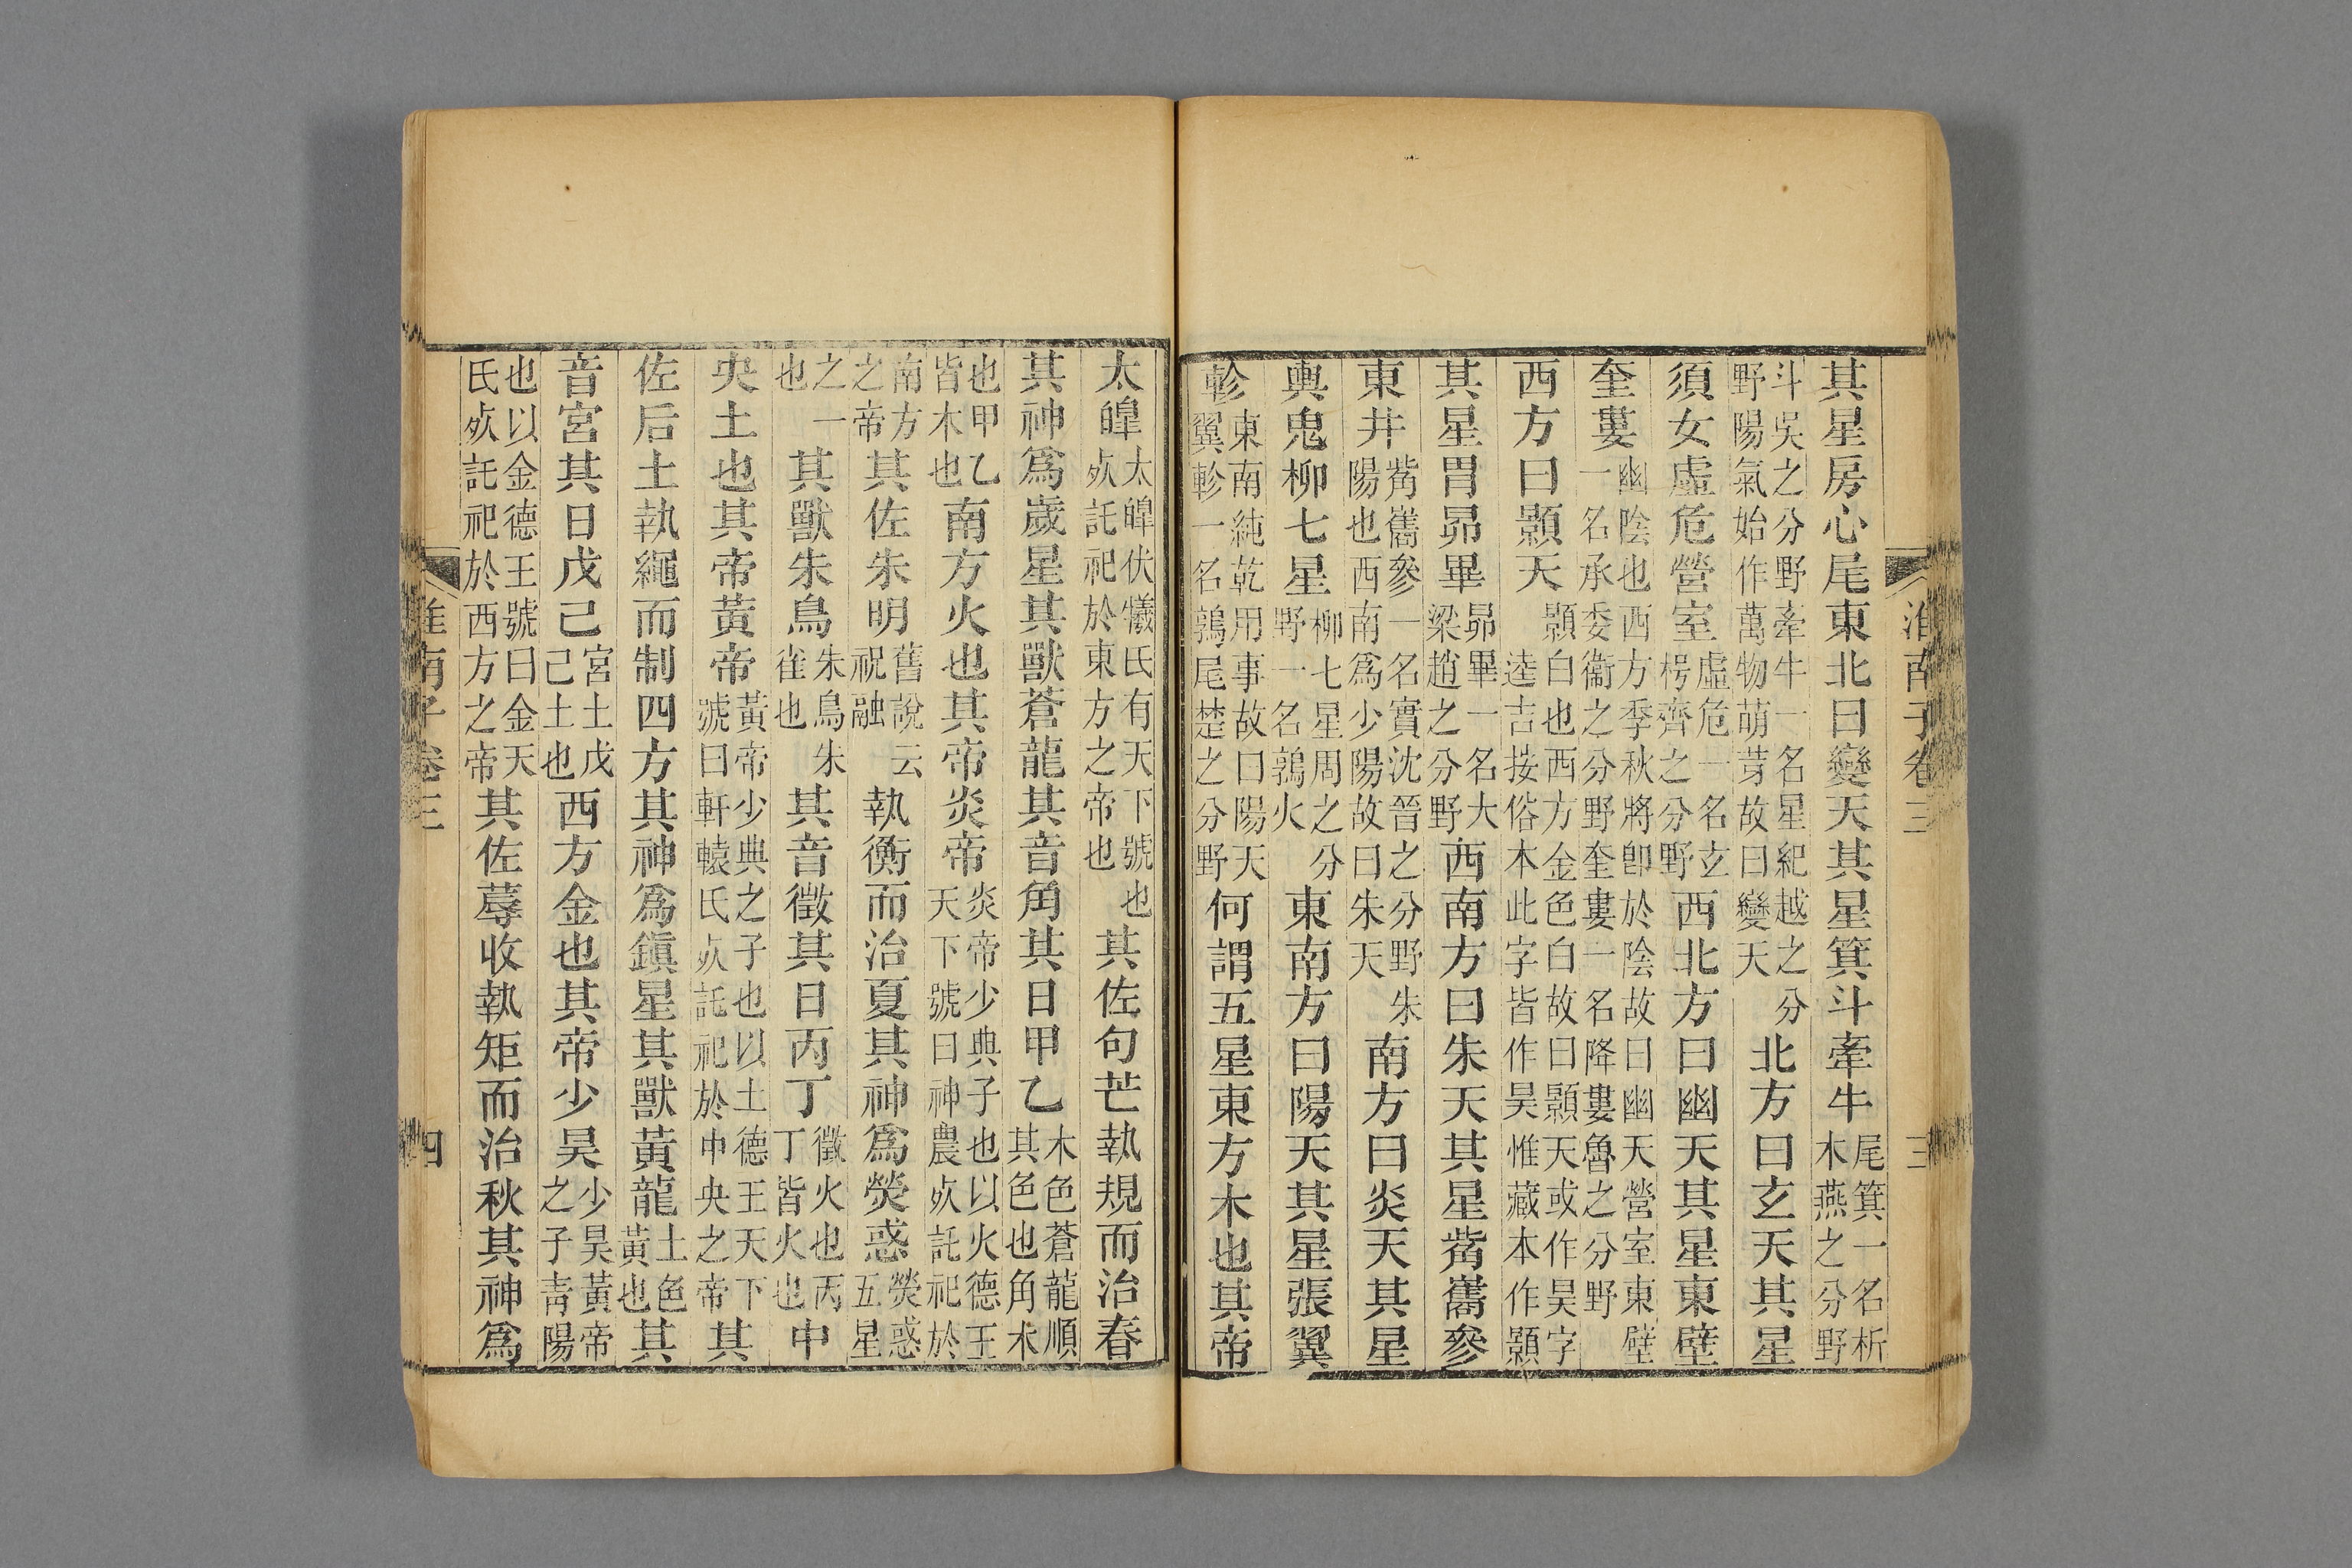 淮南子卷三　三
其星房心尾東北曰變天其星箕斗牽牛尾箕一名析木燕之分野
斗吳之分野牽牛一名星紀越之分野陽氣始作萬物萌芽故曰變天北方曰玄天其星
須女虛危營室虛危一名玄枵齊之分野西北方曰幽天其星東壁
奎婁幽陰也西方季秋將卽於陰故曰幽天營室東壁一名承委衞之分野奎婁一名降婁魯之分野
西方曰顥天顥白也西方金色白故曰顥天或作昊字逵吉按俗本此字皆作昊惟藏本作顥
其星胃昴畢昴畢一名大梁趙之分野西南方曰朱天其星觜巂參
東井觜巂參一名實沈晉之分野朱陽也西南爲少陽故曰朱天南方曰炎天其星
輿鬼柳七星柳七星周之分野一名鶉火東南方曰陽天其星張翼
軫東南純乾用事故曰陽天翼軫一名鶉尾楚之分野何謂五星東方木也其帝
太皥太皥伏犧氏有天下號也死託祀於東方之帝也其佐句芒執規而治春
其神爲歲星其獸蒼龍其音角其日甲乙木色蒼龍順其色也角木
也甲乙皆木也南方火也其帝炎帝炎帝少典子也以火德王天下號曰神農死託祀於
南方之帝其佐朱明舊說云祝融執衡而治夏其神爲熒惑熒惑五星
之一也其獸朱鳥朱鳥朱雀也其音徵其日丙丁徵火也丙丁皆火也中
央土也其帝黃帝黃帝少典之子也以土德王天下號曰軒轅氏死託祀於中央之帝其
佐后土執繩而制四方其神爲鎮星其獸黃龍土色黃也其
音宮其日戊己宮土戊己土也西方金也其帝少昊少昊黃帝之子靑陽
也以金德王號曰金天氏死託祀於西方之帝其佐蓐收執矩而治秋其神爲
淮南子卷三　四